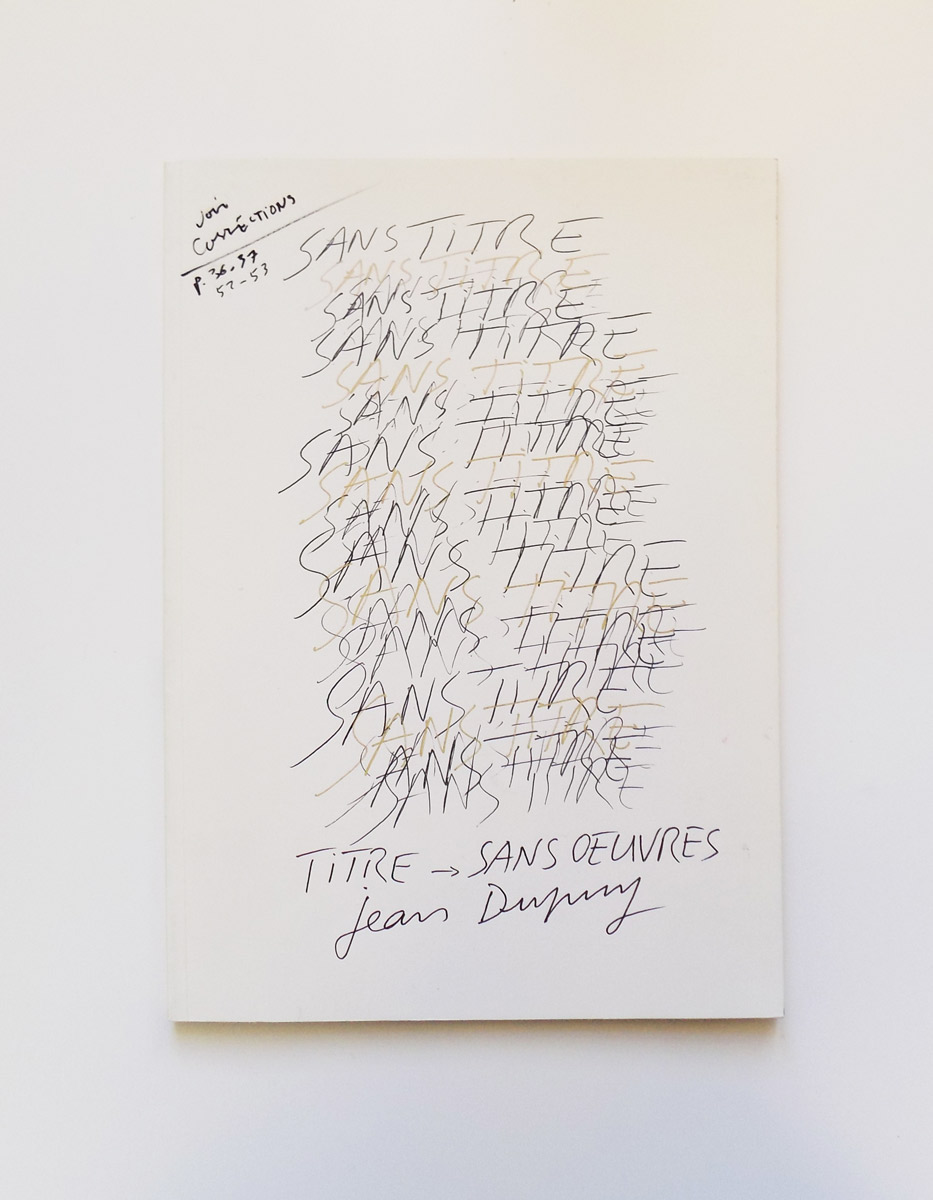 Voir
Corréctions
p. 36-37
52-53
SANS TITRE
SANS TITRE
SANS TITRE
SANS TITRE
SANS TITRE
SANS TITRE
SANS TITRE
SANS TITRE
SANS TITRE
SANS TITRE
SANS TITRE
SANS TITRE
SANS TITRE
SANS TITRE
SANS TITRE
SANS TITRE
SANS TITRE
TITRE → SANS OEUVRES
jean Dupuy